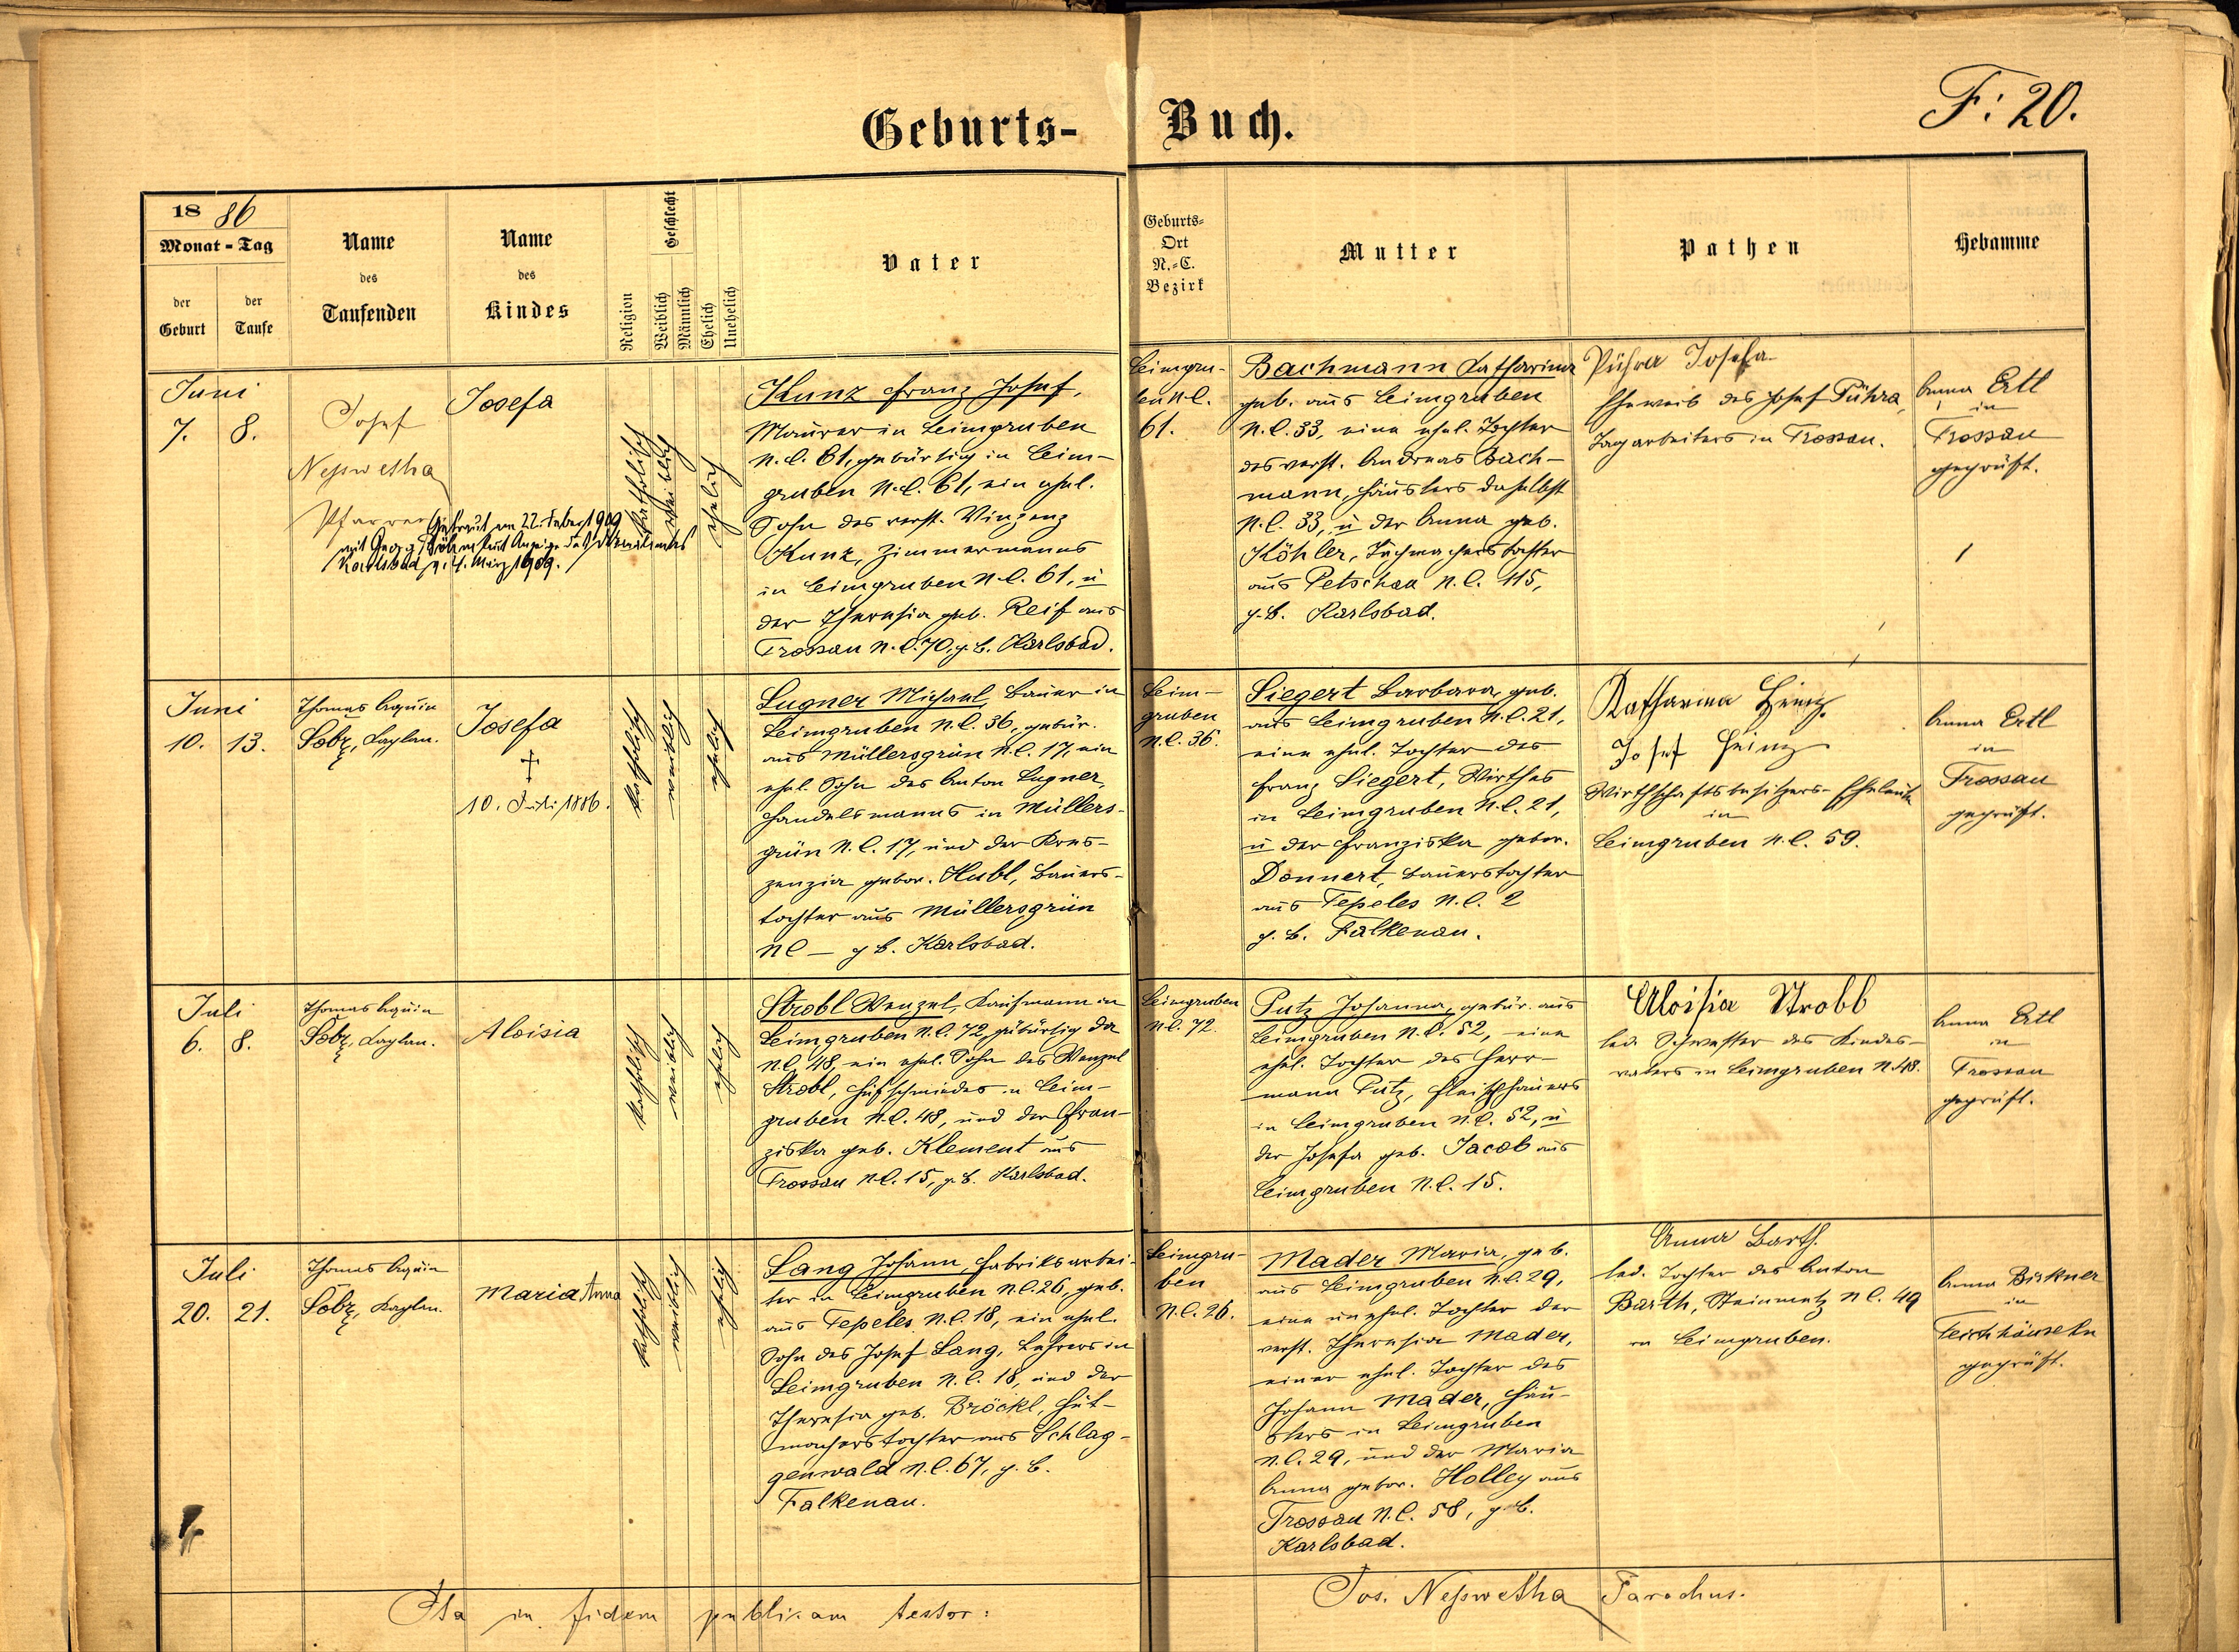 F: 20.
Geburts- Buch.
18 86
Monat - Tag
der Geburt
der Taufe
Name
des
Taufenden
Name
des
Kindes
Religion
Geschlecht
Weiblich
Männlich
Ehelich
Unehelich
Vater
Geburts-
Ort
N.-C.
Bezirk
Mutter
Pathen
Hebamme
Juni
7. 8.
Josef
Nesswetha
Pfarrer
Josefa
Getraut am 22. Feber 1909
mit Georg
Karlsbad v. 4. März 1909.
katholisch
weiblich
ehelich
Kunz Franz Josef,
Maurer in Leimgruben
N.C. 61, gebürtig in Leim-
gruben N.C. 61, ein ehel.
Sohn des verst. Vinzenz
Kunz, Zimmermanns
in Leimgruben N.C. 61, u
der Theresia geb. Reif aus
Trossau N.C. 70, g. B. Karlsbad.
Leimgru-
ben N.C.
61.
Bachmann Katharina
geb. aus Leimgruben
N.C. 33, eine ehel. Tochter
des verst. Andreas Bach-
mann, Häuslers daselbst
N.C. 33, u der Anna geb.
Köhler, Tuchmacherstochter
aus Petschau N.C. 115,
g. B. Karlsbad.
Pühra Josefa
Eheweib des Josef Pühra,
Tagarbeiters in Trossau.
Anna Ertl
in
Trossau
geprüft.
Juni
10. 13.
Thomas Aquin
Sobz, Kaplan.
Josefa
†
10. Juli 1886.
katholisch
weiblich
ehelich
Lugner Michael, Bauer in
Leimgruben N.C. 36, gebür.
aus Müllersgrün N.C. 17, ein
ehel. Sohn des Anton Lugner,
Handelsmanns in Müllers-
grün N.C. 17, und der Kres-
zenzia gebor. Hubl, Bauers-
tochter aus Müllersgrün
NC — g B. Karlsbad.
Leim-
gruben
N.C. 36.
Siegert Barbara, geb.
aus Leimgruben N.C. 21,
eine ehel. Tochter des
Franz Siegert, Wirthes
in Leimgruben N.C. 21,
u der Franziska gebor.
Donnert, Bauerstochter
aus Tepeles N.C. 2
g. B. Falkenau.
Katharina Heinz
Josef Heinz
Wirthschaftsbesitzers-Eheleute
in
Leimgruben N.C. 59.
Anna Ertl
in
Trossau
geprüft.
Juli
6. 8.
Thomas Aquin
Sobz, Kaplan.
Aloisia
katholisch
weiblich
ehelich
Strobl Wenzel, Kaufmann in
Leimgruben N.C. 72, gebürtig da
N.C. 48, ein ehel. Sohn des Wenzel
Strobl, Hufschmiedes in Leim-
gruben N.C. 48, und der Fran-
ziska geb. Klement aus
Trossau N.C. 15, g. B. Karlsbad.
Leimgruben
N.C. 72.
Putz Johanna, gebür. aus
Leimgruben N.C. 52, eine
ehel. Tochter des Herr-
mann Putz, Fleischhauers
in Leimgruben N.C. 52, u
der Josefa geb. Jacob aus
Leimgruben N.C. 15.
Aloisia Strobl
led. Schwester des Kindes-
vaters in Leimgruben N. 48.
Anna Ertl
in
Trossau
geprüft.
Juli
20. 21.
Thomas Aquin
Sobz, Kaplan.
Maria Anna
katholisch
weiblich
ehelich
Lang Johann, Fabriksarbei-
ter in Leimgruben N.C. 26, geb.
aus Tepeles N.C. 18, ein ehel.
Sohn des Josef Lang, Lehrers in
Leimgruben N.C. 18, und der
Theresia geb. Bröckl, Hut-
macherstochter aus Schlag-
genwald N.C. 67, g. B.
Falkenau.
Leimgru-
ben
N.C. 26.
Mader Maria, geb.
aus Leimgruben N.C. 29,
eine unehel. Tochter der
verst. Theresia Mader,
einer ehel. Tochter des
Johann Mader, Häu-
slers in Leimgruben
N.C. 29, und der Maria
Anna gebor. Holley aus
Trossau N.C. 58, g. B.
Karlsbad.
Anna Barth.
led. Tochter des Anton
Barth, Steinmetz N C. 49
in Leimgruben.
Anna Birkner
in
Teichhäuseln
geprüft.
Ita in fidem publicam testor:
Jos. Nesswetha Parochus.